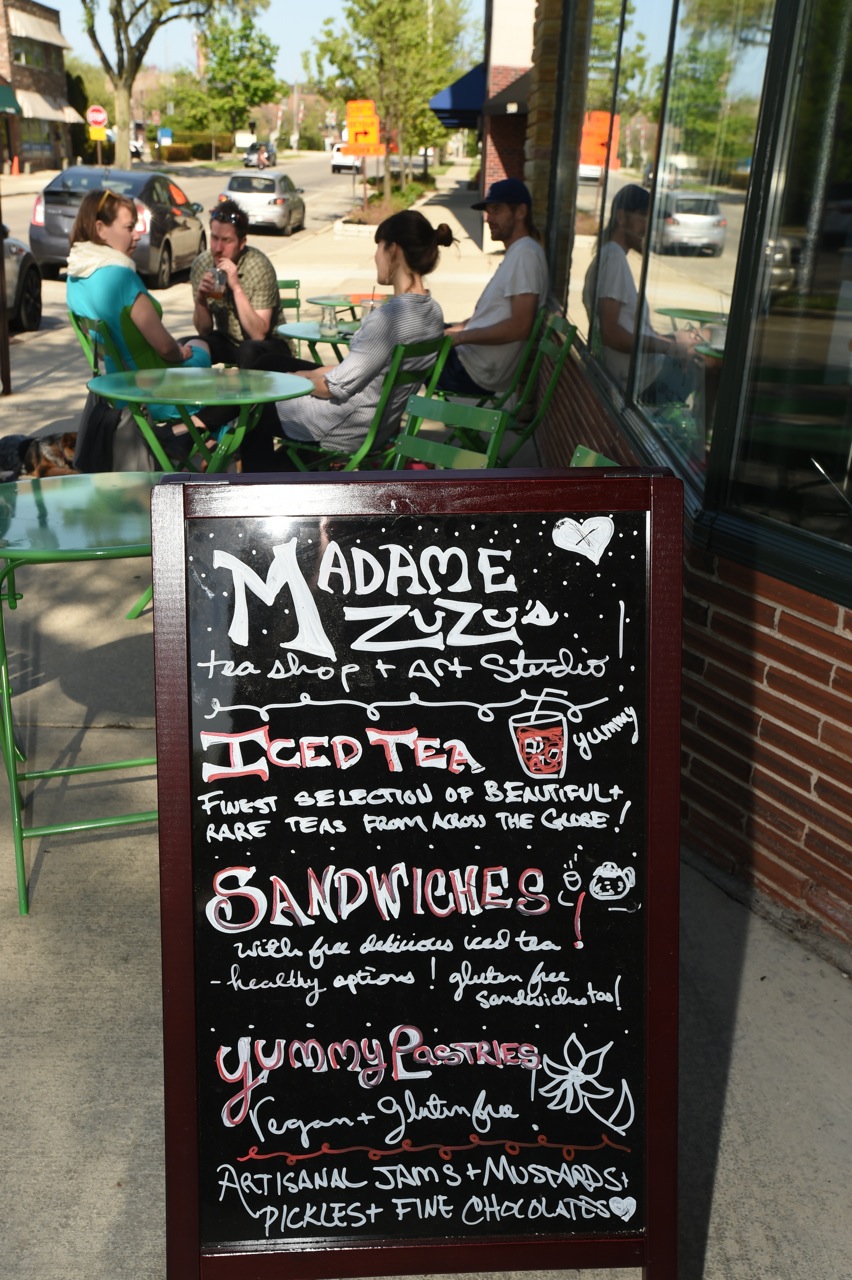 MADAME
ZUZU's
tea shop + Art Studio
ICED TEA
yummy
FINEST SELECTION OF BEAUTIFUL +
RARE TEAS FROM ACROSS THE GLOBE!
SANDWICHES
with free delicious iced tea!
- healthy options! gluten free
sandwiches too!
yummy PASTRIES
Vegan + Gluten free
ARTISANAL JAMS + MUSTARDS +
PICKLES + FINE CHOCOLATES